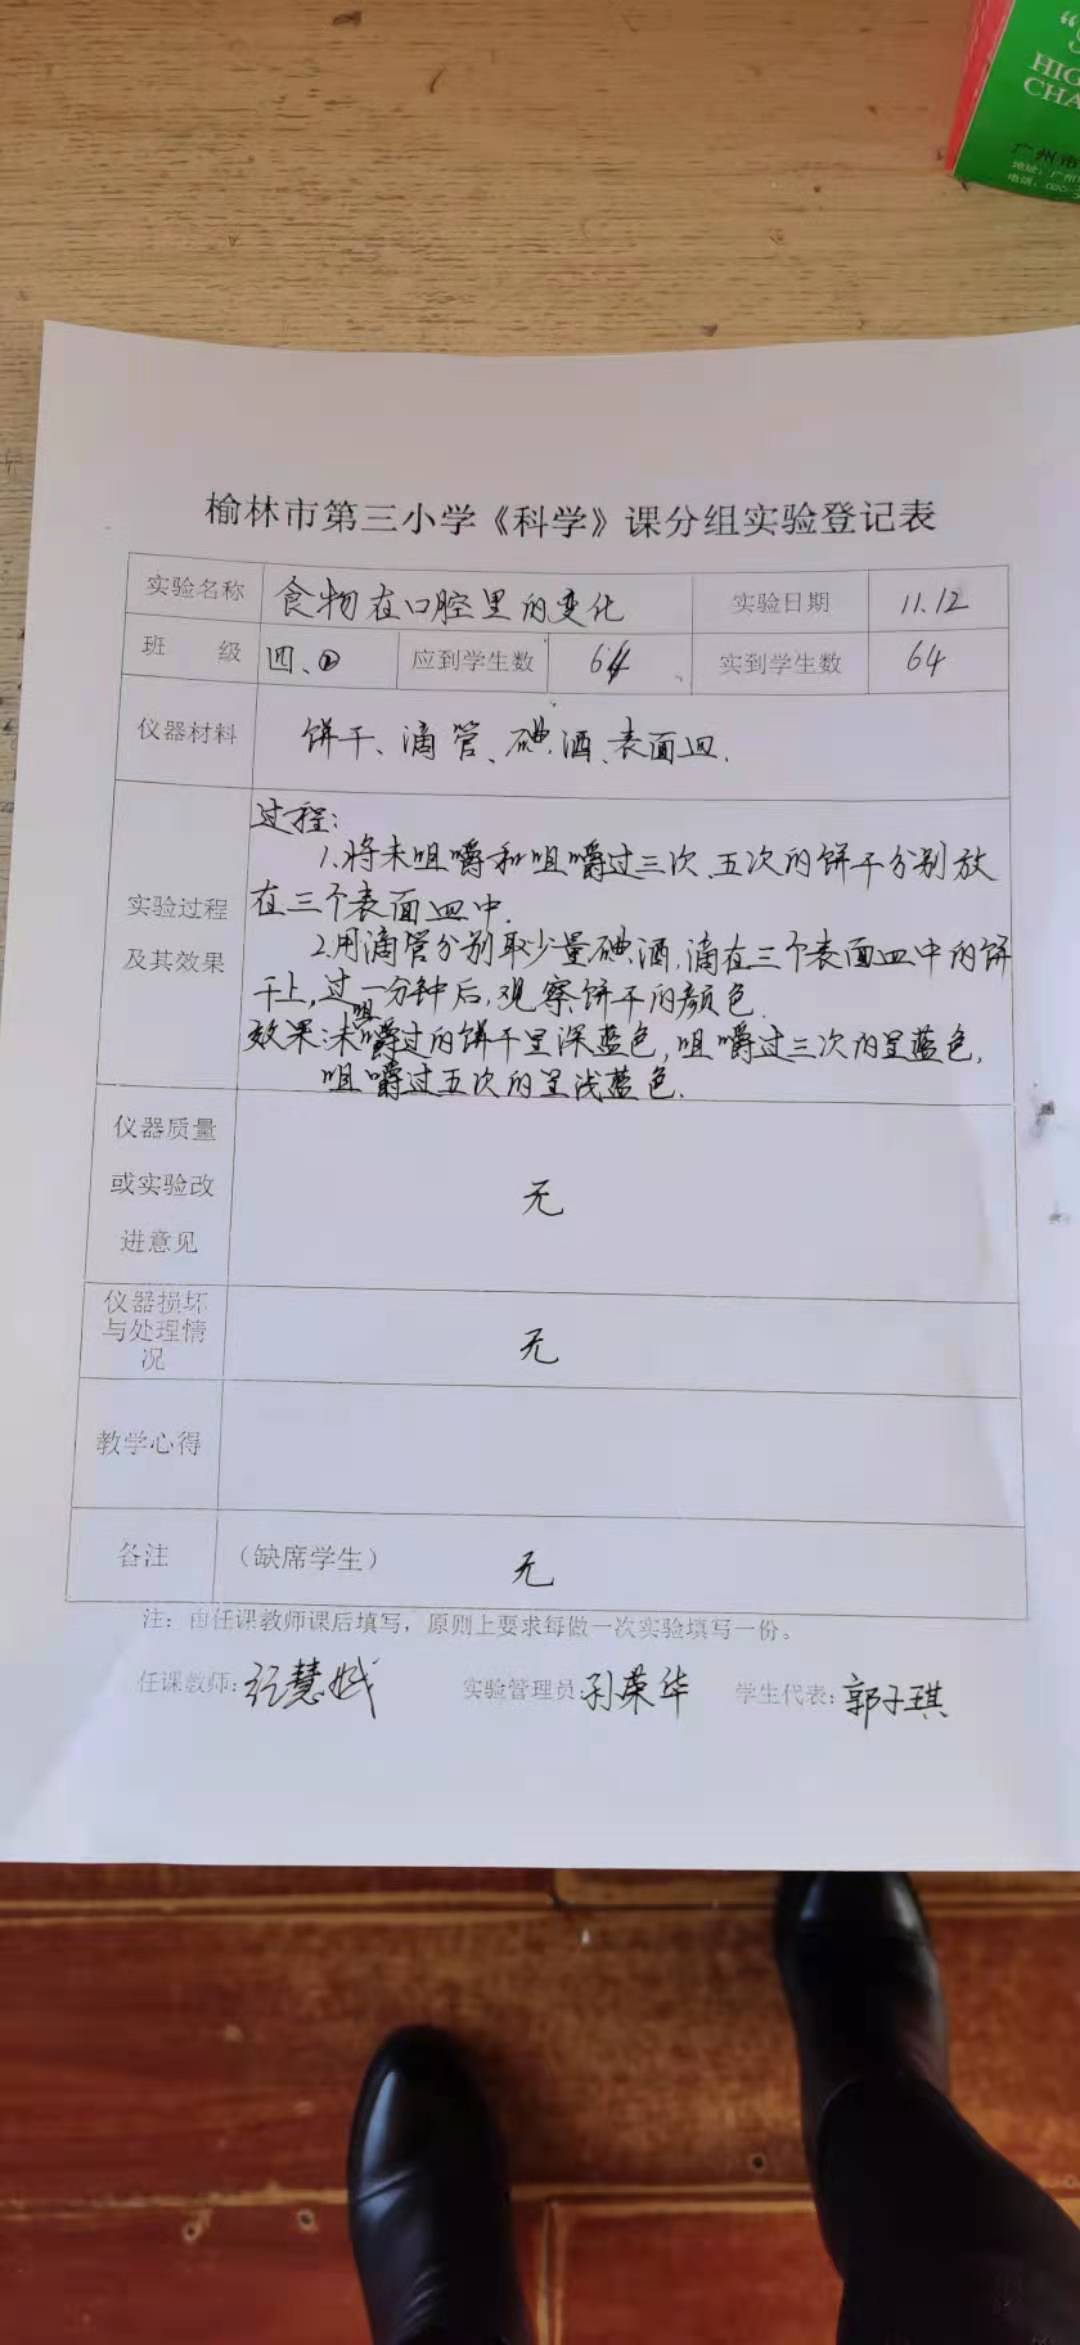 HIG
CHA
广州市
地址：广州
电话：020-3
榆林市第三小学《科学》课分组实验登记表
实验名称 食物在口腔里的变化 实验日期 11.12
班 级 四、② 应到学生数 64 实到学生数 64
仪器材料 饼干、滴管、碘酒、表面皿.
过程：
1.将未咀嚼和咀嚼过三次、五次的饼干分别放
在三个表面皿中.
实验过程
及其效果
2.用滴管分别取少量碘酒,滴在三个表面皿中的饼
干上,过一分钟后,观察饼干的颜色.
效果:未咀嚼过的饼干呈深蓝色,咀嚼过三次的呈蓝色,
咀嚼过五次的呈浅蓝色.
仪器质量
或实验改
进意见
无
仪器损坏
与处理情
况
无
教学心得
备注 （缺席学生） 无
注：由任课教师课后填写，原则上要求每做一次实验填写一份。
任课教师: 慧 实验管理员: 孙荣华 学生代表: 郭子琪